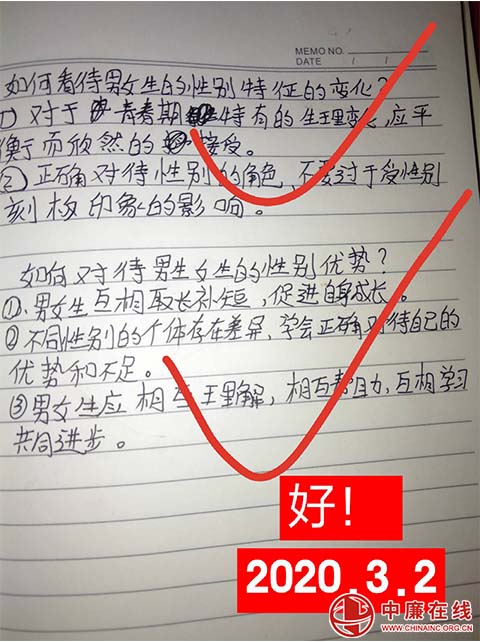 MEMO NO.
DATE / /
如何看待男女生的性别特征的变化?
① 对于青春期特有的生理变化,应平
衡而欣然的接受。
② 正确对待性别的角色,不要过于受性别
刻板印象的影响。
如何对待男生女生的性别优势?
①.男女生互相取长补短,促进自身成长。
②不同性别的个体存在差异,学会正确对待自己的
优势和不足。
③男女生应相互理解,相互帮助,互相学习
共同进步。
好!
2020.3.2
中廉在线
WWW.CHINAINC.ORG.CN